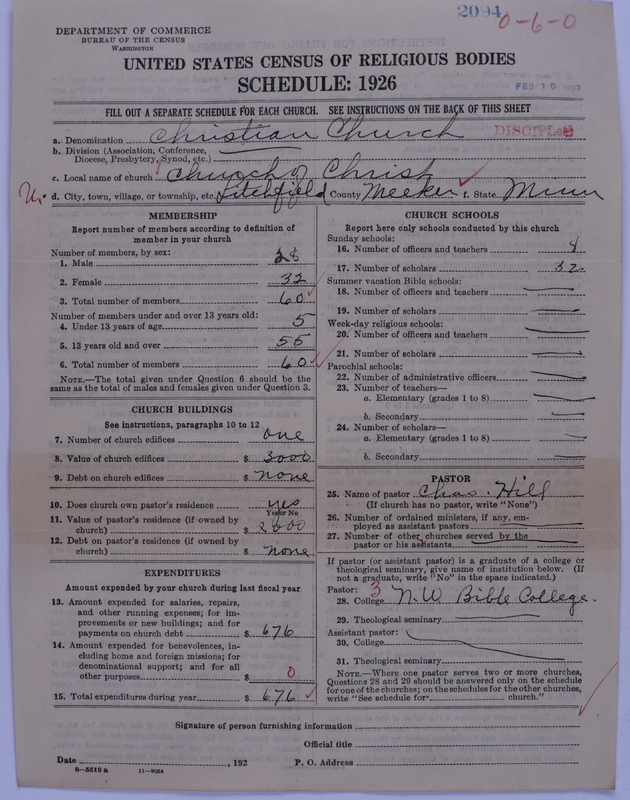 2094 0-6-0
DEPARTMENT OF COMMERCE
BUREAU OF THE CENSUS
WASHINGTON
UNITED STATES CENSUS OF RELIGIOUS BODIES
SCHEDULE: 1926
FEB 10 1927
FILL OUT A SEPARATE SCHEDULE FOR EACH CHURCH. SEE INSTRUCTIONS ON THE BACK OF THIS SHEET
a. Denomination Christian Church DISCIPLES
b. Division (Association, Conference,
Diocese, Presbytery, Synod, etc.)
c. Local name of church Church of Christ
d. City, town, village, or township, etc. Litchfield County Meeker f. State Minn
MEMBERSHIP
Report number of members according to definition of
member in your church
Number of members, by sex:
1. Male 28
2. Female 32
3. Total number of members 60
Number of members under and over 13 years old:
4. Under 13 years of age 5
5. 13 years old and over 55
6. Total number of members 60
NOTE.—The total given under Question 6 should be the
same as the total of males and females given under Question 3.
CHURCH BUILDINGS
See instructions, paragraphs 10 to 12
7. Number of church edifices one
8. Value of church edifices $ 3000
9. Debt on church edifices $ none
10. Does church own pastor's residence yes
Yes or No
11. Value of pastor's residence (if owned by
church) $ 2000
12. Debt on pastor's residence (if owned by
church) $ none
EXPENDITURES
Amount expended by your church during last fiscal year
13. Amount expended for salaries, repairs,
and other running expenses; for im-
provements or new buildings; and for
payments on church debt $ 676
14. Amount expended for benevolences, in-
cluding home and foreign missions; for
denominational support; and for all
other purposes $ 0
15. Total expenditures during year $ 676
CHURCH SCHOOLS
Report here only schools conducted by this church
Sunday schools:
16. Number of officers and teachers
17. Number of scholars 32
Summer vacation Bible schools:
18. Number of officers and teachers
19. Number of scholars
Week-day religious schools:
20. Number of officers and teachers
21. Number of scholars
Parochial schools:
22. Number of administrative officers
23. Number of teachers—
a. Elementary (grades 1 to 8)
b. Secondary
24. Number of scholars—
a. Elementary (grades 1 to 8)
b. Secondary
PASTOR
25. Name of pastor Chas. Hill
(If church has no pastor, write "None")
26. Number of ordained ministers, if any, em-
ployed as assistant pastors
27. Number of other churches served by the
pastor or his assistants
If pastor (or assistant pastor) is a graduate of a college or
theological seminary, give name of institution below. (If
not a graduate, write "No" in the space indicated.)
Pastor: 3
28. College N.W. Bible College.
29. Theological seminary
Assistant pastor:
30. College
31. Theological seminary
NOTE.—Where one pastor serves two or more churches,
Questions 28 and 29 should be answered only on the schedule
for one of the churches; on the schedules for the other churches,
write "See schedule for church."
Signature of person furnishing information
Official title
Date , 192 P. O. Address
8—5518 a 11—9054